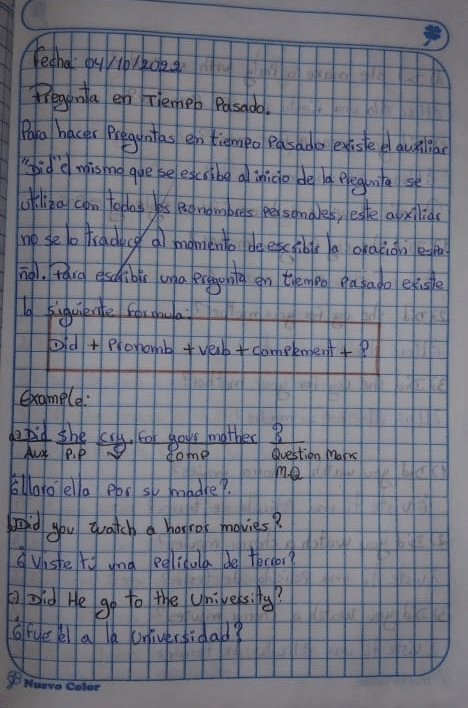 Fecha: 04/10/2022
Pregunta en Tiempo Pasado.
Para hacer Preguntas en tiempo Pasado existe el auxiliar
"Did" el mismo que se escribe al inicio de la Pregunta se
utiliza con todos los Pronombres Personales, este auxiliar
no se lo traduce al momento de escribir la oración espa-
ñol. Para escribir una Pregunta en tiempo Pasado existe
la siguiente formula:
Did + Pronomb + verb + complement + ?
Example:
a) Did she cry for your mother ?
Aux P.P V Comp Question Mark
M.Q
¿lloro ella Por su madre?.
b) Did you watch a horror movies?
¿Viste tú una Película de terror?
c) Did He go to the University?
¿Fue él a la Universidad?
Nuevo Color